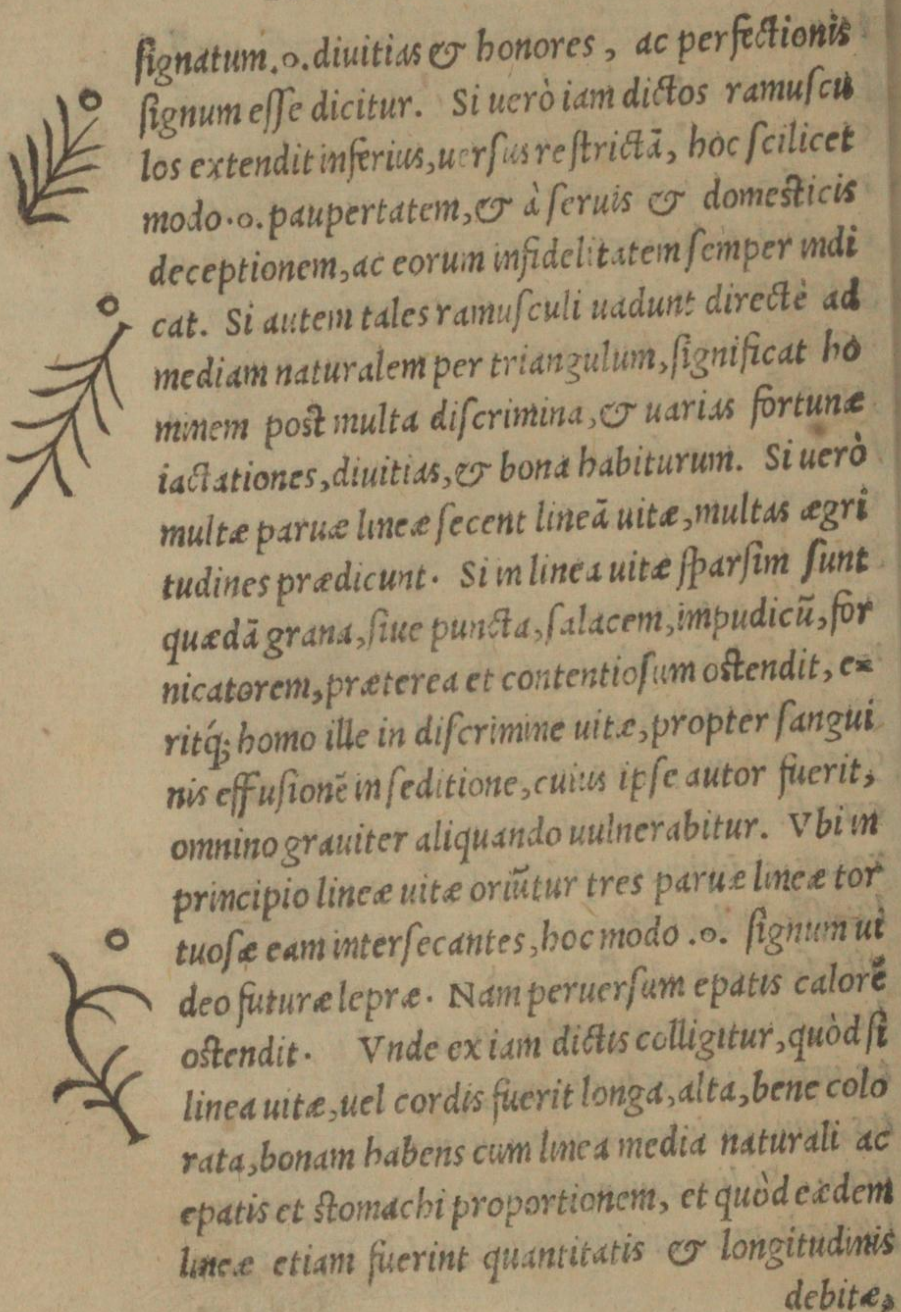 ſignatum.o.diuitias & honores, ac perfectionis
ſignum eſſe dicitur. Si uerò iam dictos ramuſcu
los extendit inferius,uerſus reſtrictā, hoc ſcilicet
modo.o.paupertatem,& à ſeruis & domeſticis
deceptionem,ac eorum infidelitatem ſemper indi
cat. Si autem tales ramuſculi uadunt directè ad
mediam naturalem per triangulum,ſignificat ho
minem poſt multa diſcrimina,& uarias fortunæ
iactationes,diuitias,& bona habiturum. Si uerò
multæ paruæ lineæ ſecent lineā uitæ,multas ægri
tudines prædicunt. Si in linea uitæ ſparſim ſunt
quædā grana,ſiue puncta,ſalacem,impudicū,for
nicatorem,præterea et contentioſum oſtendit, e=
ritq́; homo ille in diſcrimine uitæ,propter ſangui
nis effuſionē in ſeditione,cuius ipſe autor fuerit,
omnino grauiter aliquando uulnerabitur. Vbi in
principio lineæ uitæ oriūtur tres paruæ lineæ tor
tuoſæ eam interſecantes,hoc modo .o. ſignum ui
deo futuræ lepræ. Nam peruerſum epatis calorē
oſtendit. Vnde ex iam dictis colligitur,quòd ſi
linea uitæ,uel cordis fuerit longa,alta,bene colo
rata,bonam habens cum linea media naturali ac
epatis et ſtomachi proportionem, et quòd eædem
lineæ etiam fuerint quantitatis & longitudinis
debitæ,
o
o
o